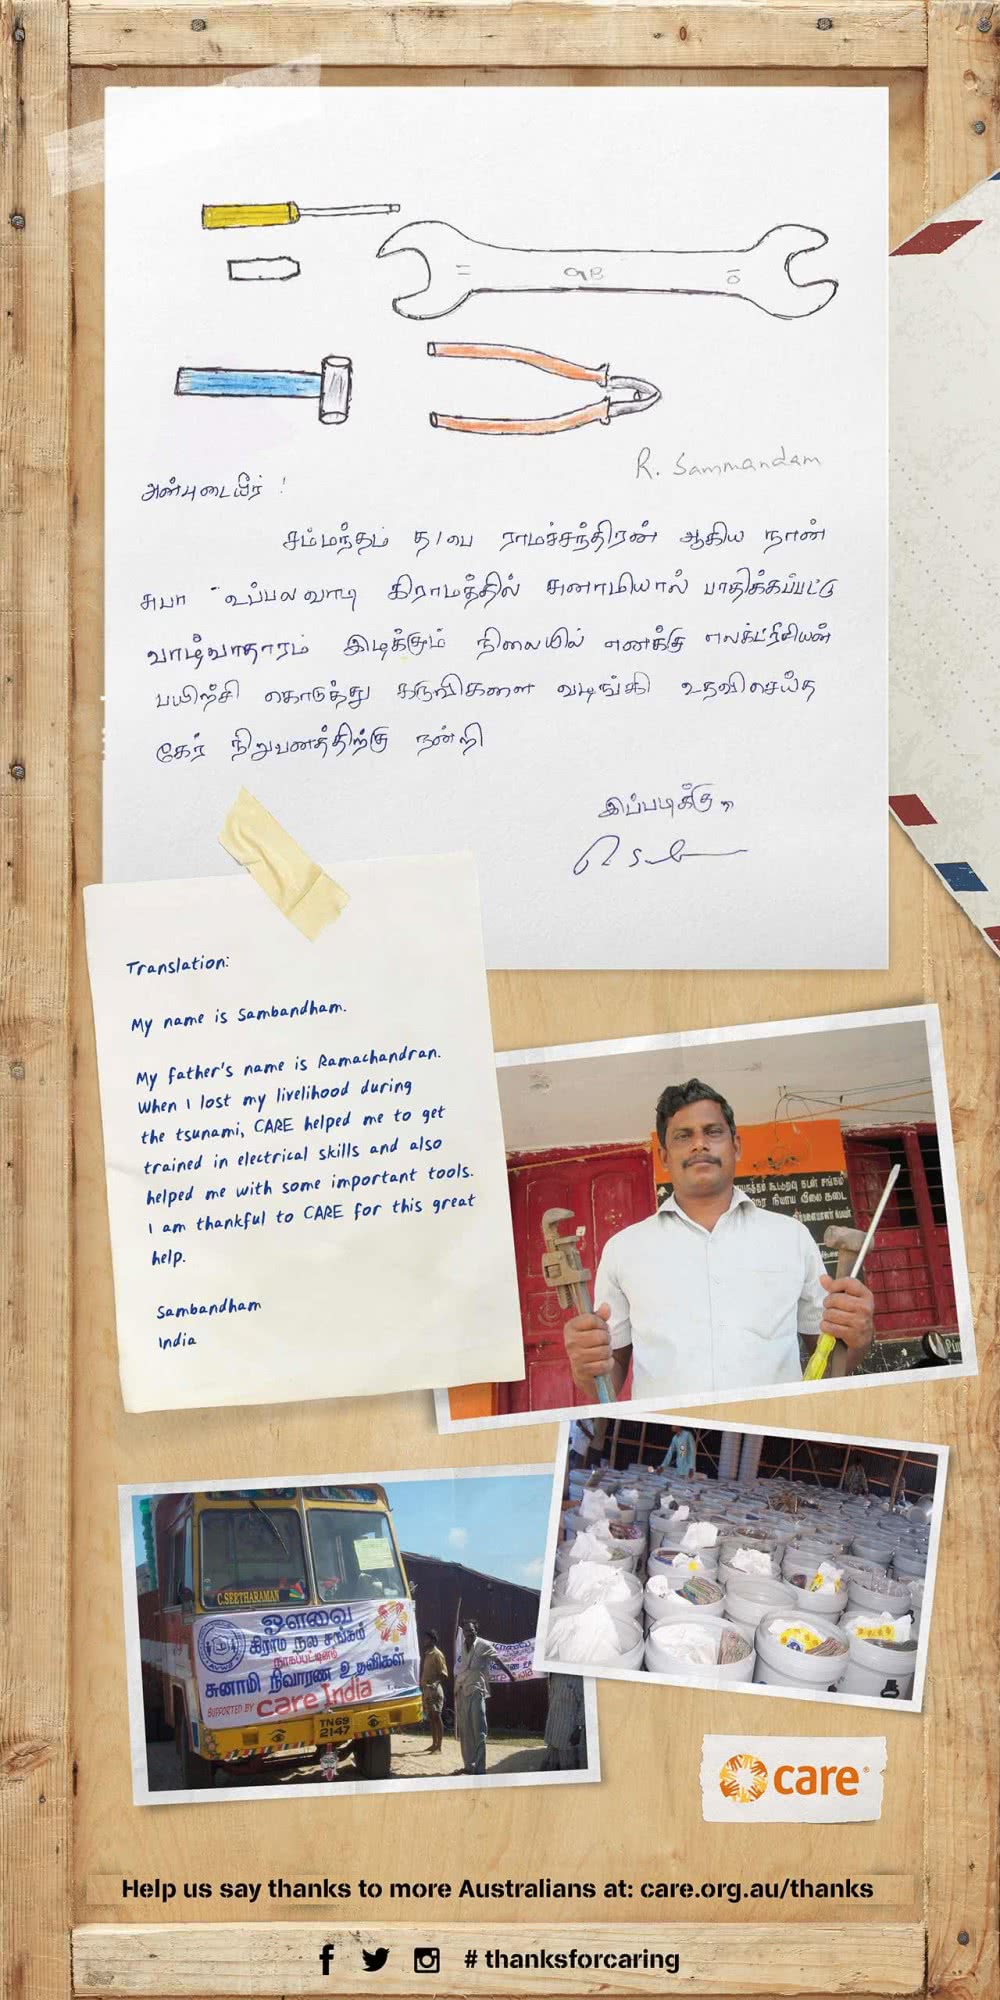 R. Sammandam
அன்புடையீர் !
சம்மந்தம் த/பெ ராமச்சந்திரன் ஆகிய நான்
சுபா உப்பலவாடி கிராமத்தில் சுனாமியால் பாதிக்கப்பட்டு
வாழ்வாதாரம் இடிக்கும் நிலையில் எனக்கு எலக்ட்ரீசியன்
பயிற்சி கொடுத்து கருவிகளை வழங்கி உதவிசெய்த
கேர் நிறுவனத்திற்கு நன்றி
இப்படிக்கு,
Translation:
My name is Sambandham.
My father's name is Ramachandran.
When I lost my livelihood during
the tsunami, CARE helped me to get
trained in electrical skills and also
helped me with some important tools.
I am thankful to CARE for this great
help.
Sambandham
India
கூட்டுறவு கடன் சங்கம்
நியாய விலை கடை
C.SEETHARAMAN
ஔவை
கிராம நல சங்கம்
நாகப்பட்டினம்
சுனாமி நிவாரண உதவிகள்
SUPPORTED BY care India
TN69
2147
care®
Help us say thanks to more Australians at: care.org.au/thanks
# thanksforcaring